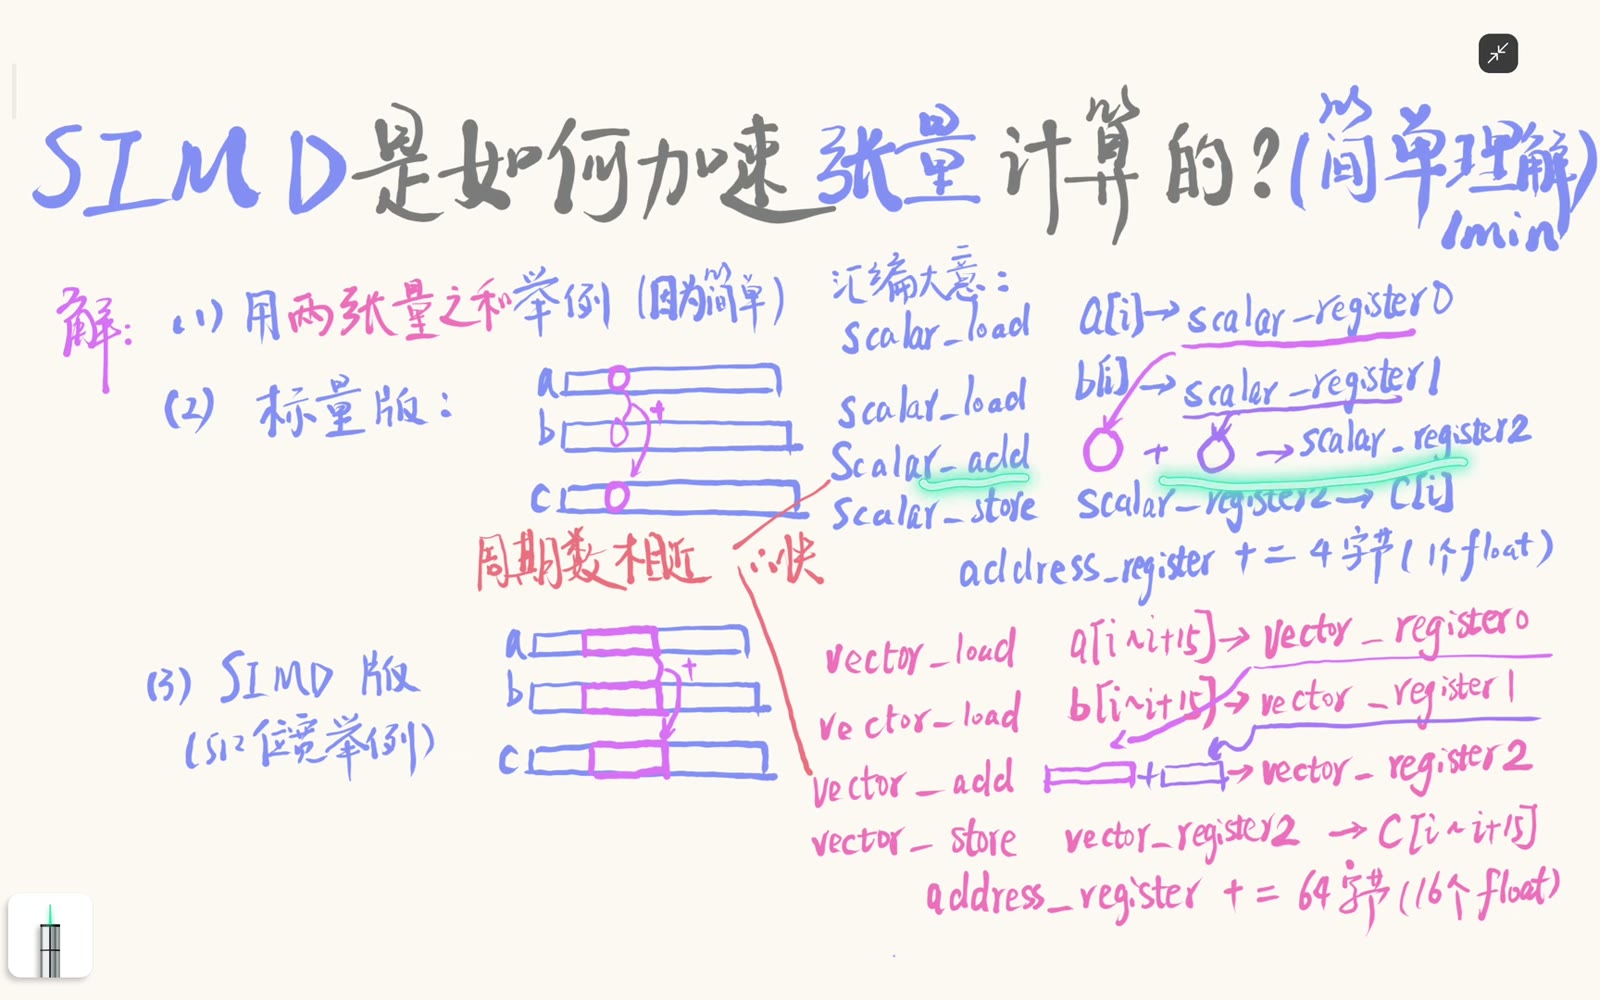 SIMD是如何加速张量计算的?(简单理解)
1min
解: (1) 用两张量之和举例 (因为简单)
(2) 标量版:
a
b
+
c
汇编大意:
scalar_load a[i]→scalar_register0
scalar_load b[i]→scalar_register1
scalar_add + →scalar_register2
scalar_store scalar_register2→C[i]
address_register += 4字节(1个float)
周期数相近 ∴快
(3) SIMD 版
(512位宽举例)
a
b
+
c
vector_load a[i~i+15]→vector_register0
vector_load b[i~i+15]→vector_register1
vector_add +→vector_register2
vector_store vector_register2→C[i~i+15]
address_register += 64字节(16个float)